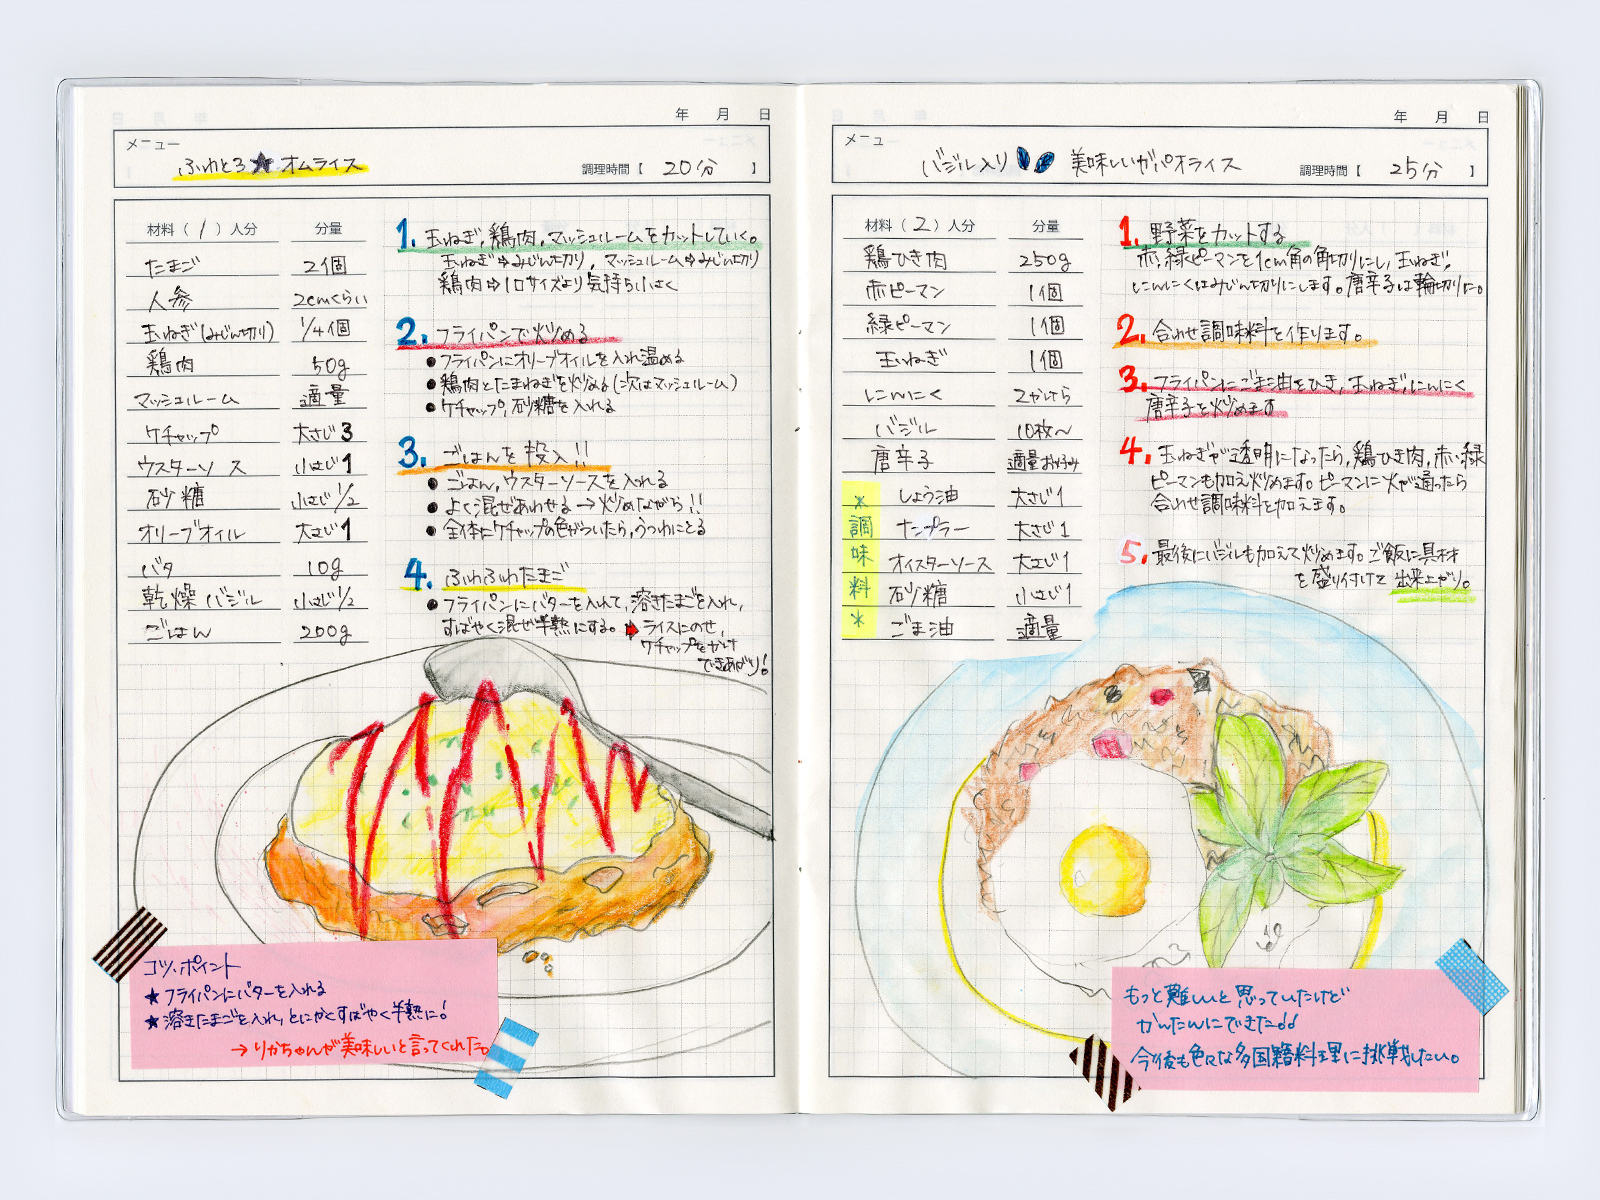 年 月 日
メニュー
ふわとろ★オムライス
調理時間【 20分 】
材料(1)人分 分量
たまご 2個
人参 2cmくらい
玉ねぎ(みじん切り) 1/4個
鶏肉 50g
マッシュルーム 適量
ケチャップ 大さじ3
ウスターソース 小さじ1
砂糖 小さじ1/2
オリーブオイル 大さじ1
バタ 10g
乾燥バジル 小さじ1/2
ごはん 200g
1. 玉ねぎ,鶏肉,マッシュルームをカットしていく。
玉ねぎ⇨みじん切り, マッシュルーム⇨みじん切り
鶏肉⇨1口サイズより気持ち小さく
2. フライパンで炒める
●フライパンにオリーブオイルを入れ温める
●鶏肉とたまねぎを炒める(次はマッシュルーム)
●ケチャップ,砂糖を入れる
3. ごはんを投入!!
●ごはん,ウスターソースを入れる
●よく混ぜあわせる→炒めながら!!
●全体にケチャップの色がついたら,うつわにとる
4. ふわふわたまご
●フライパンにバターを入れて,溶きたまごを入れ,
すばやく混ぜ半熟にする。➡ライスにのせ,
ケチャップをかけ
できあがり!
コツ、ポイント
★フライパンにバターを入れる
★溶きたまごを入れ,とにかくすばやく半熟に!
→りかちゃんが美味しいと言ってくれた。
年 月 日
メニュー
バジル入り 美味しいガパオライス
調理時間【 25分 】
材料(2)人分 分量
鶏ひき肉 250g
赤ピーマン 1個
緑ピーマン 1個
玉ねぎ 1個
にんにく 2かけら
バジル 10枚〜
唐辛子 適量お好み
しょう油 大さじ1
ナンプラー 大さじ1
オイスターソース 大さじ1
砂糖 小さじ1
ごま油 適量
*調味料*
1. 野菜をカットする
赤,緑ピーマンを1cm角の角切りにし,玉ねぎ,
にんにくはみじん切りにします。唐辛子は輪切りに。
2. 合わせ調味料を作ります。
3. フライパンにごま油をひき,玉ねぎ,にんにく
唐辛子を炒めます
4. 玉ねぎが透明になったら,鶏ひき肉,赤い緑
ピーマンも加え炒めます。ピーマンに火が通ったら
合わせ調味料を加えます。
5. 最後にバジルも加えて炒めます。ご飯に具材
を盛り付けて出来上がり。
もっと難しいと思っていたけど
かんたんにできた。
今後も色々な多国籍料理に挑戦したい。